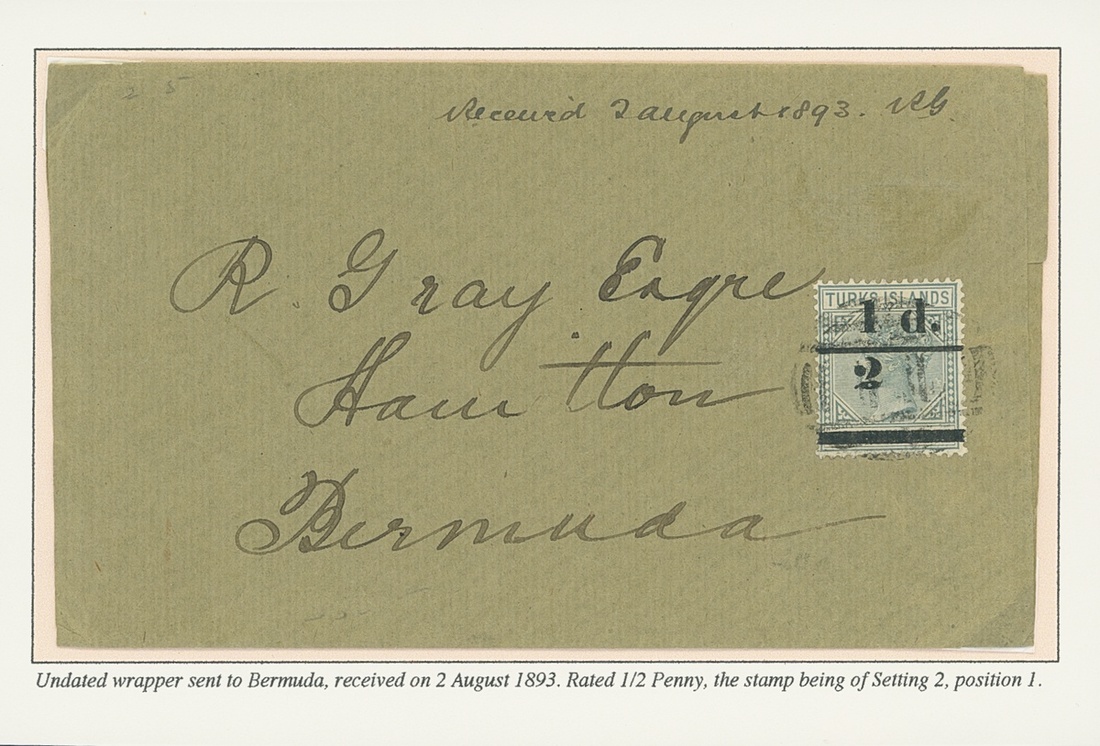 2 5
Received 2 august 1893. RG
R. Gray Esqre
Hamilton
Bermuda
TURKS ISLANDS
1 d.
2
Undated wrapper sent to Bermuda, received on 2 August 1893. Rated 1/2 Penny, the stamp being of Setting 2, position 1.